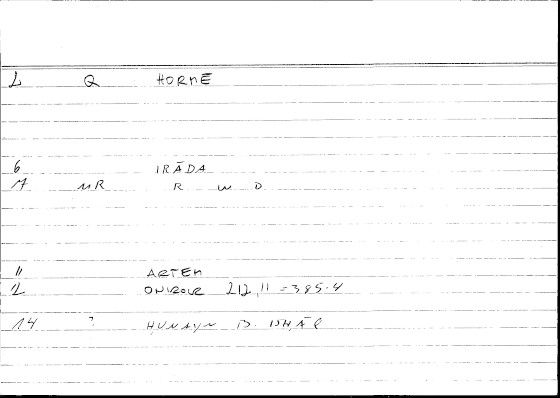 1 Q HORMĒ
6 IRĀDA
7 MR R W D
11 ARTEM
12 ONIROCR 212,11 = 385.4
14 ? HUNAYN B. ISḤĀQ